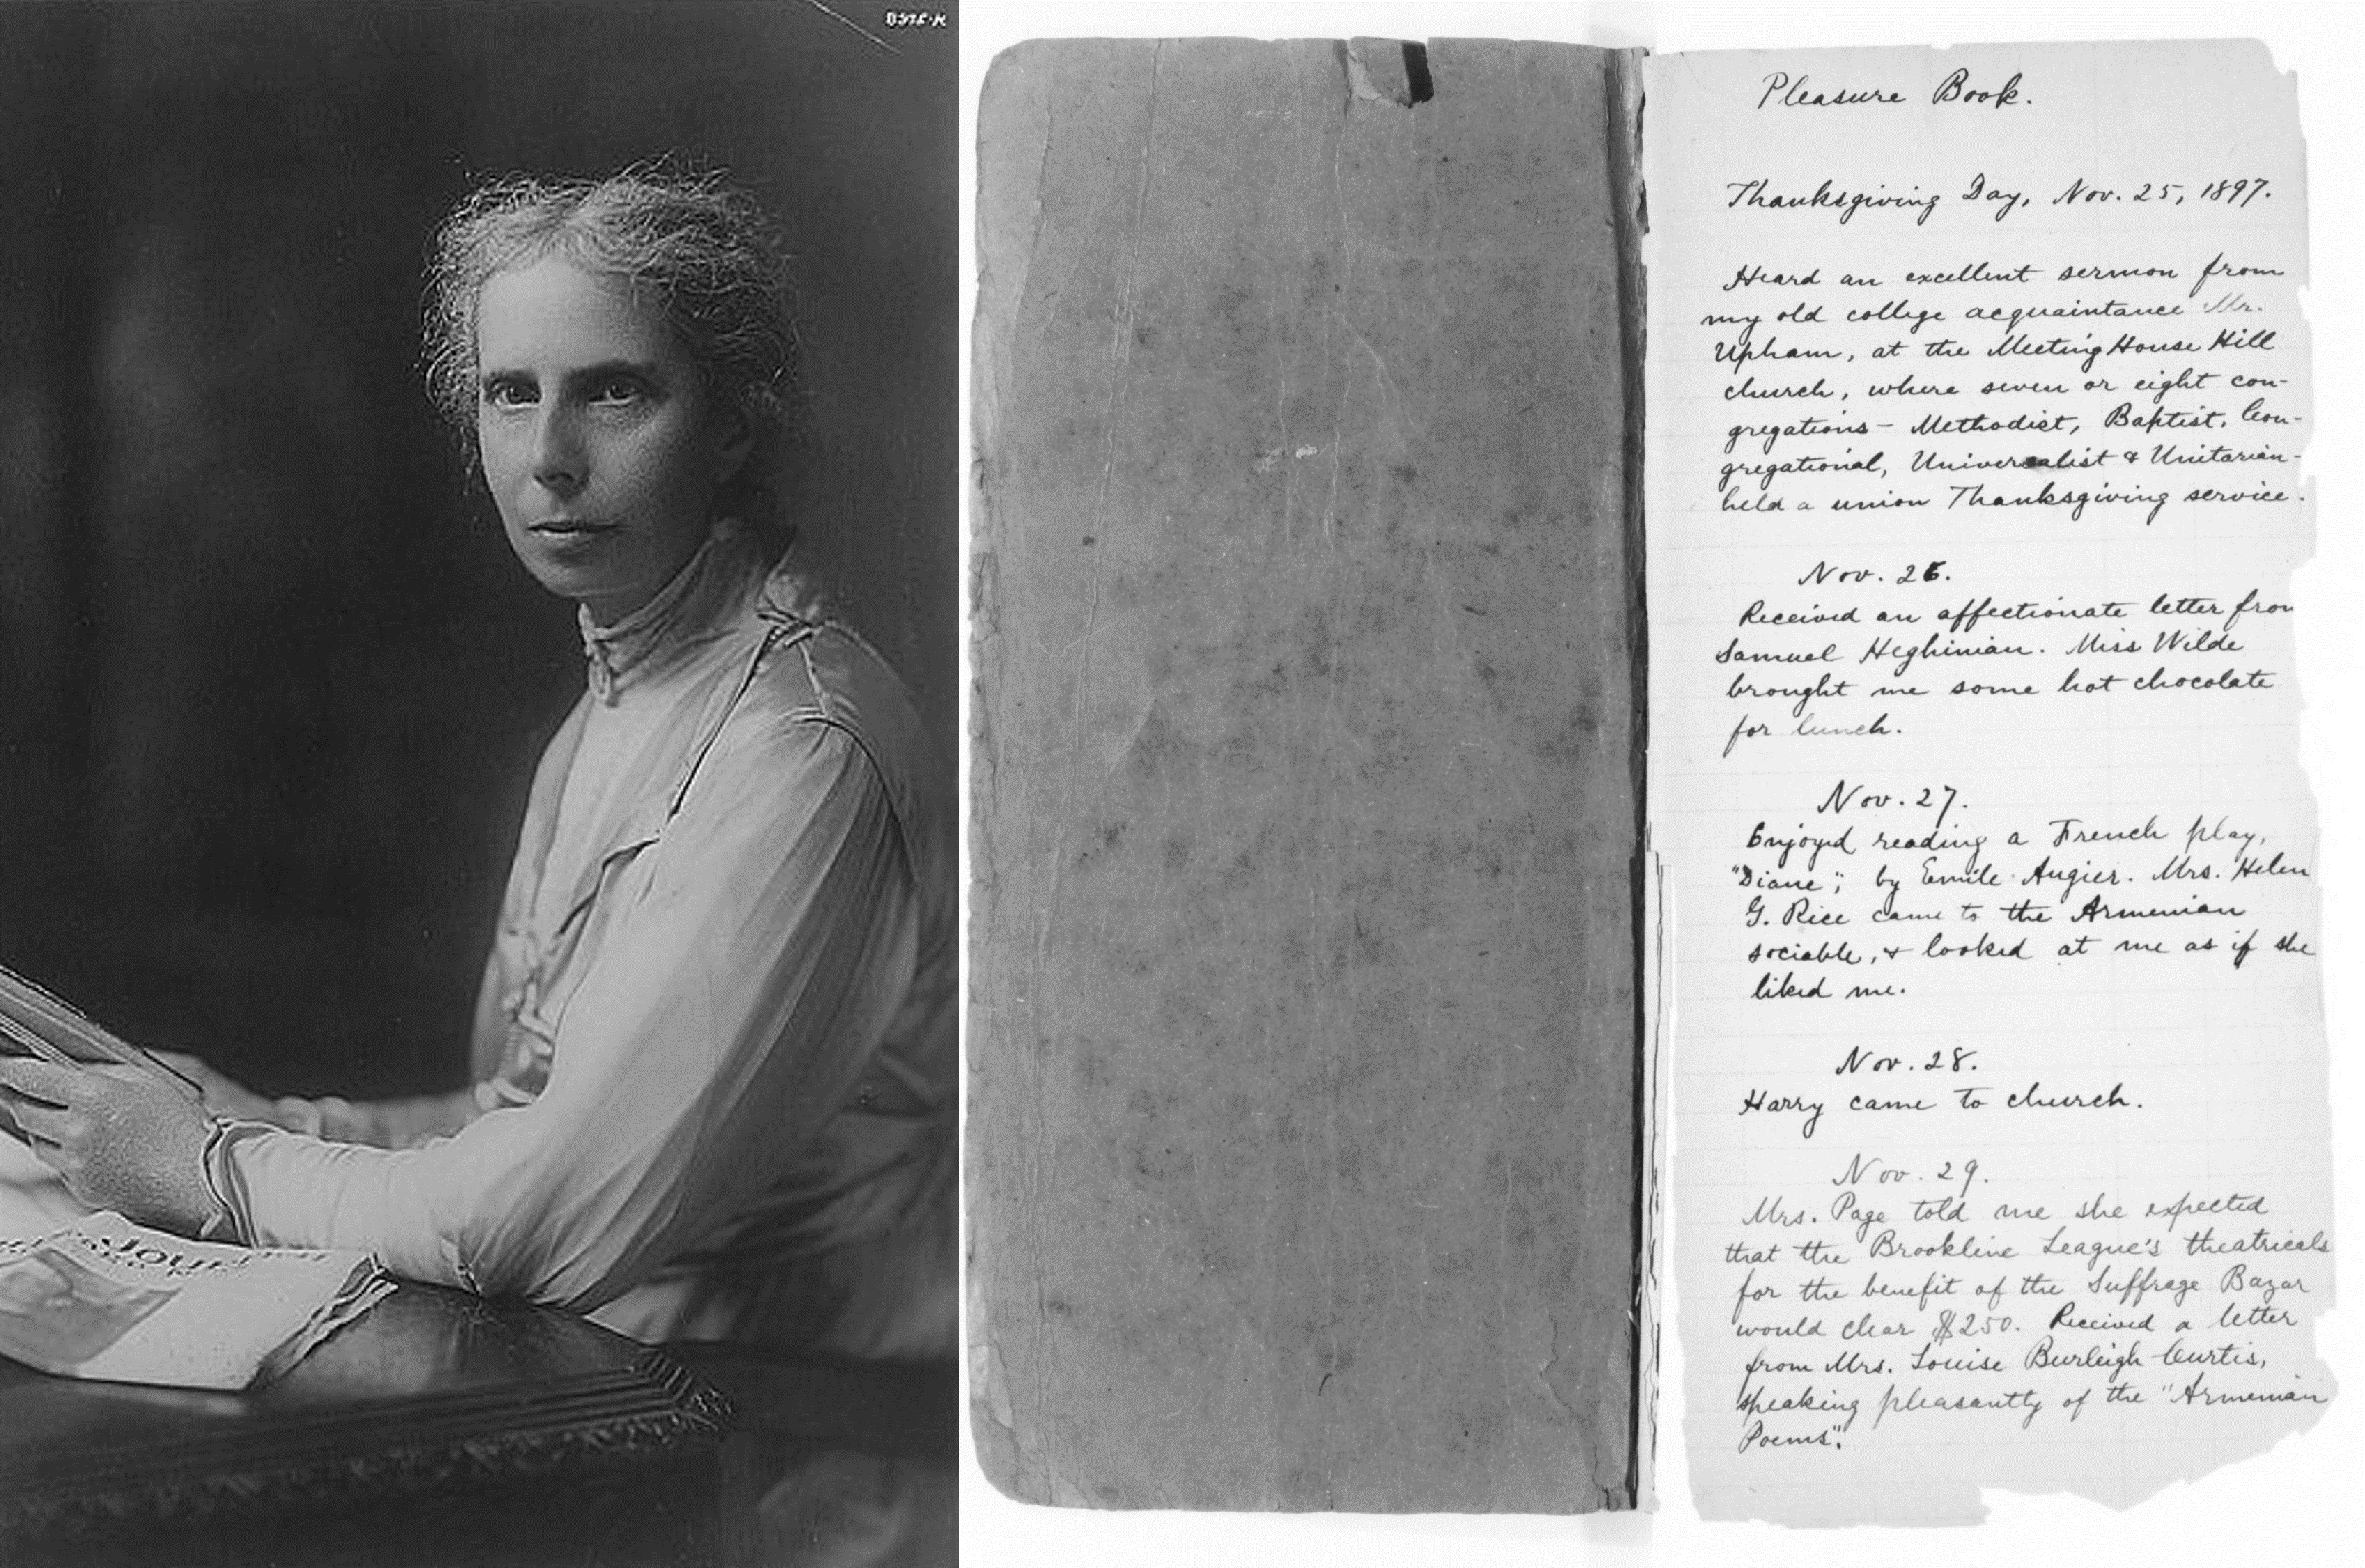 Jour
Pleasure Book.
Thanksgiving Day, Nov. 25, 1897.
Heard an excellent sermon from
my old college acquaintance Mr.
Upham, at the Meeting House Hill
church, where seven or eight con-
gregations - Methodist, Baptist, Con-
gregational, Universalist & Unitarian -
held a union Thanksgiving service.
Nov. 26.
Received an affectionate letter from
Samuel Heghinian. Miss Wilde
brought me some hot chocolate
for lunch.
Nov. 27.
Enjoyed reading a French play,
"Diane", by Emile Augier. Mrs. Helen
G. Rice came to the Armenian
sociable, & looked at me as if she
liked me.
Nov. 28.
Harry came to church.
Nov. 29.
Mrs. Page told me she expected
that the Brookline League's theatricals
for the benefit of the Suffrage Bazar
would clear $250. Received a letter
from Mrs. Louise Burleigh Curtis,
speaking pleasantly of the "Armenian
Poems".